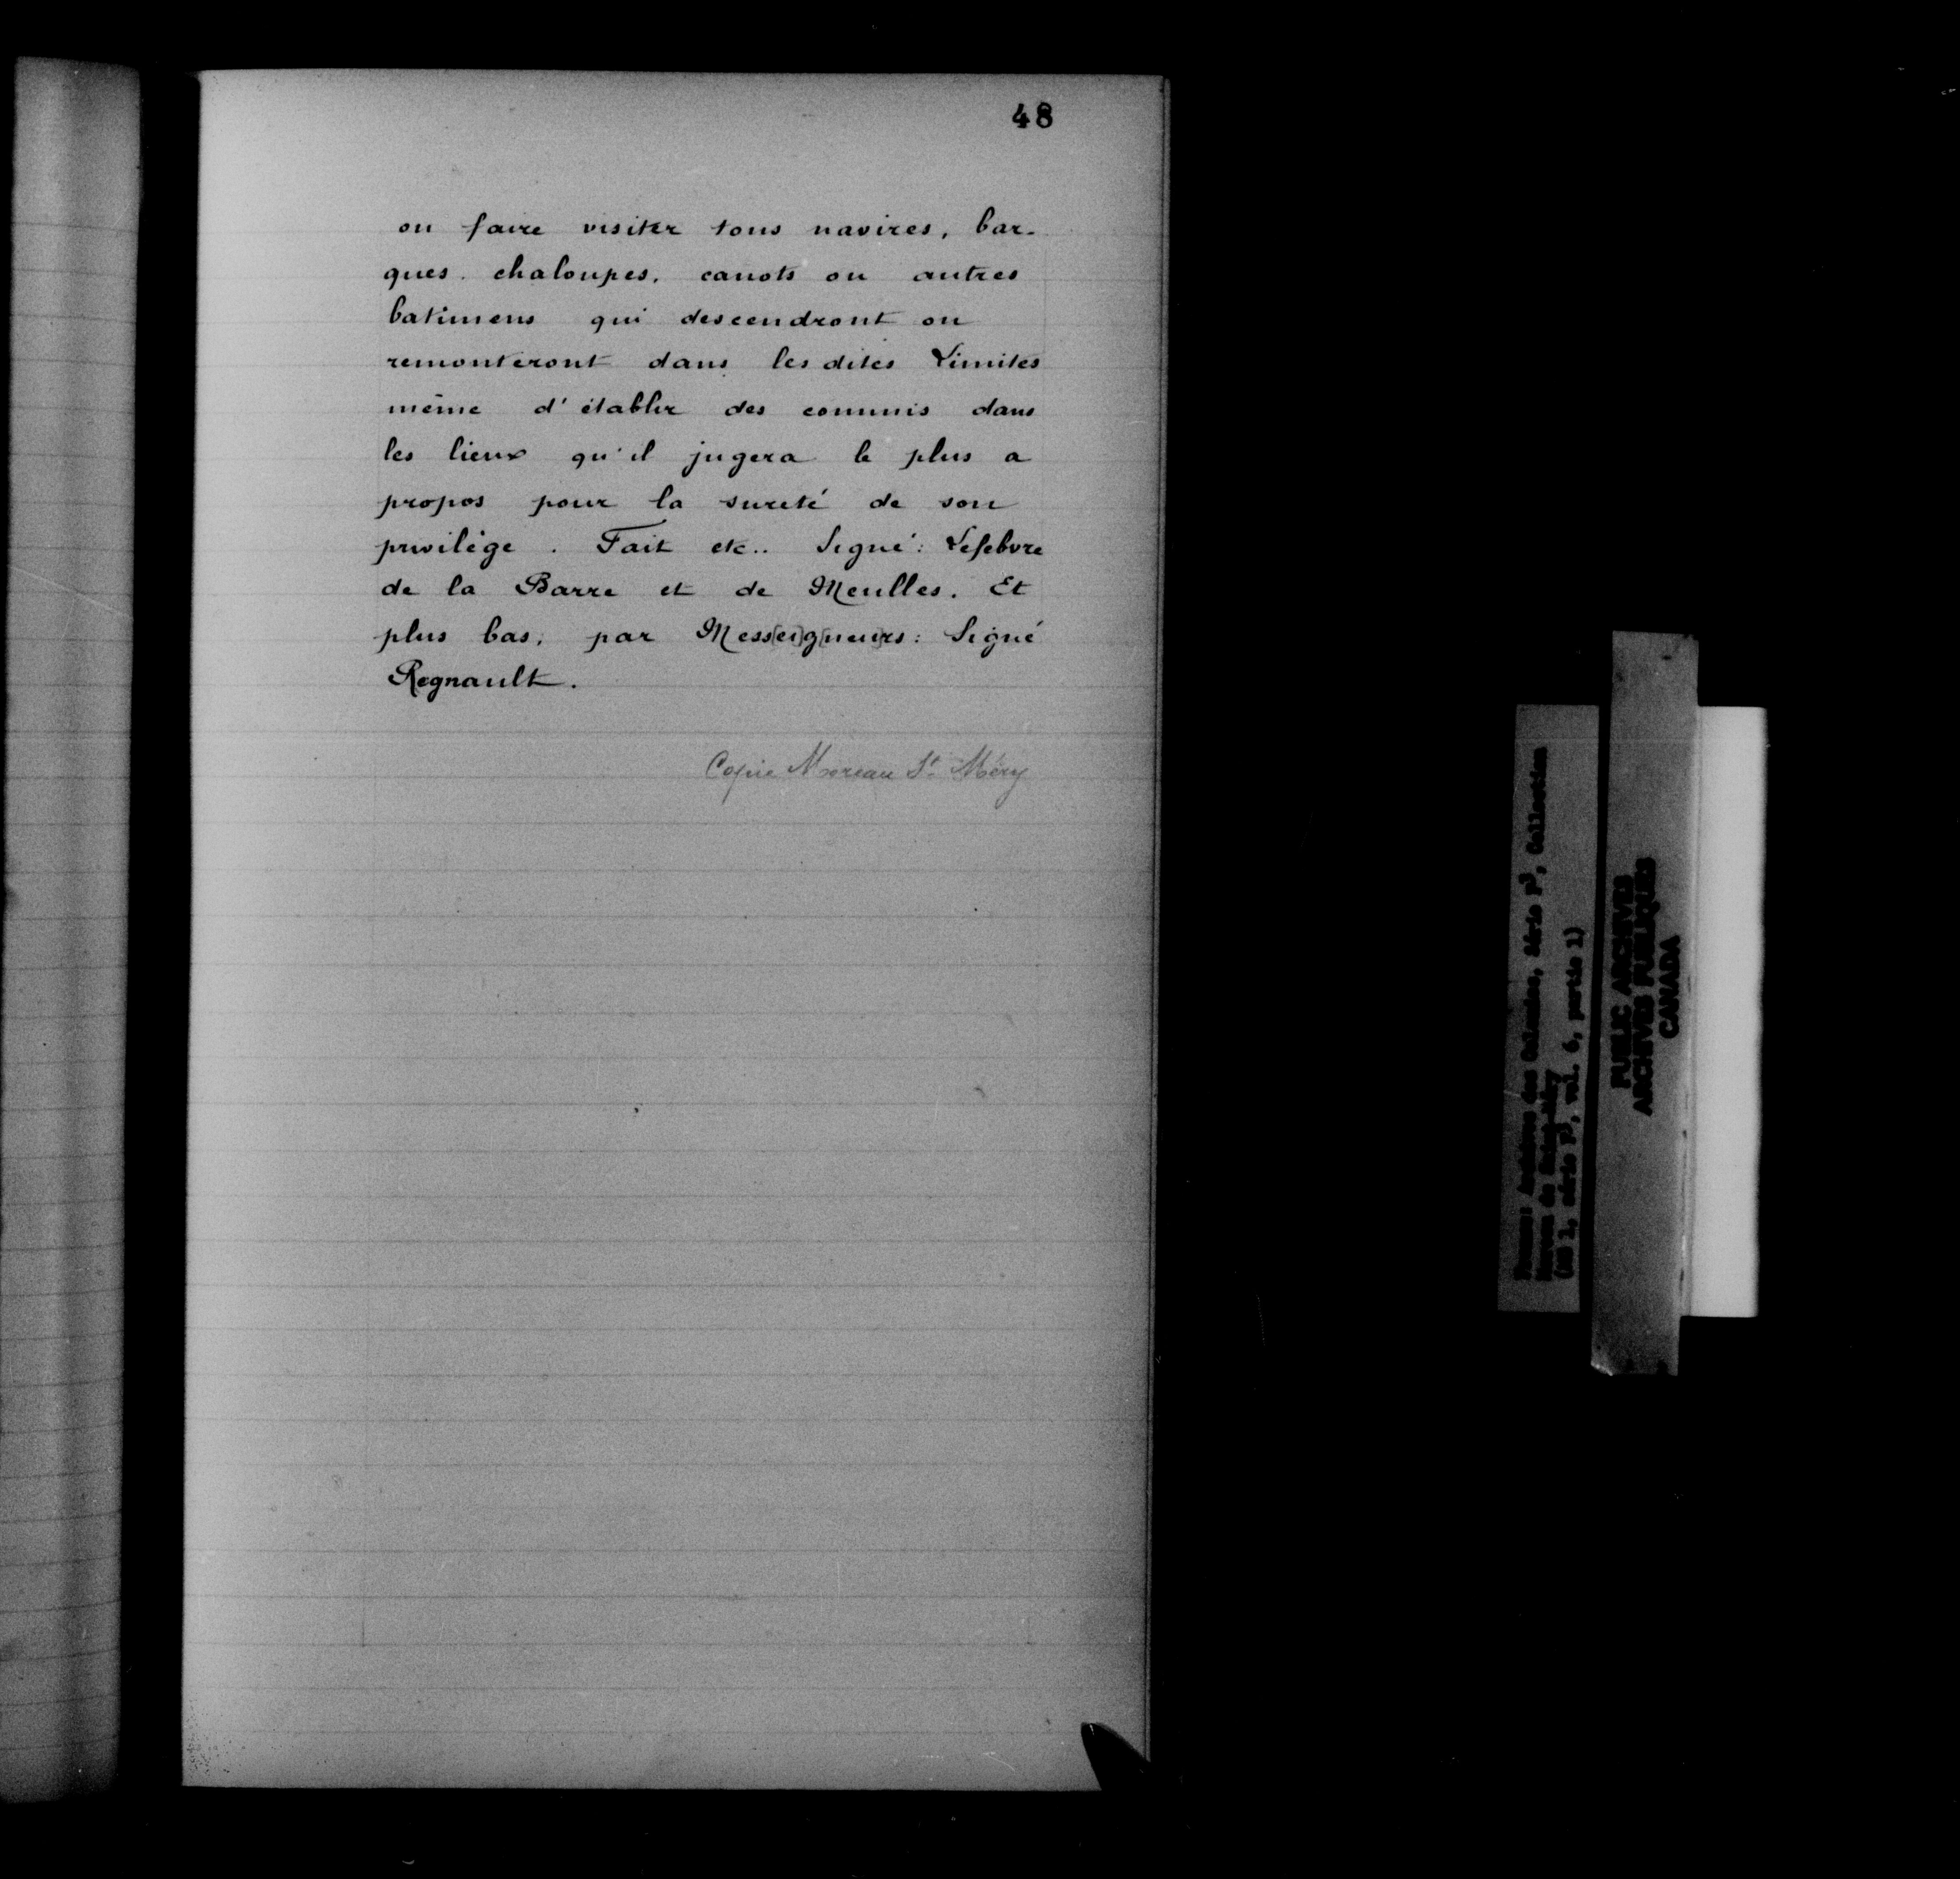 48
ou faire visiter tous navires, bar-
ques. chaloupes. canots ou autres
batimens qui descendront ou
remonteront dans les dites Limites
même d'établir des commis dans
les lieux qu'il jugera le plus a
propos pour la sureté de son
privilège. Fait etc.. Signé: Lefebvre
de la Barre et de Meulles. Et
plus bas, par Mess[ei]g[neu]rs: Signé
Regnault.
Copie Moreau St Méry
France: Archives des Colonies, Série F3, Collection
Moreau de Saint-Méry
(MG 1, série F3, vol. 6, partie 1)
PUBLIC ARCHIVES
ARCHIVES PUBLIQUES
CANADA